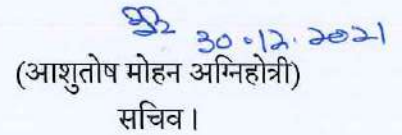 30.12.2021
(आशुतोष मोहन अग्निहोत्री)
सचिव।